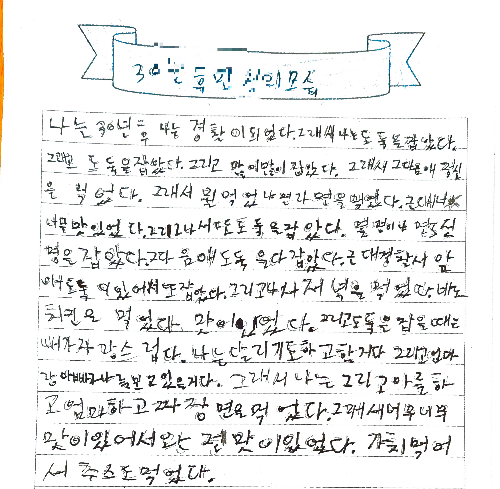 30년 후 편 성의 모습
나는 30년 후 나는 경찰이 되었다. 그래서 나는 도둑을 잡았다.
그래고 도둑을 잡았다. 그리고 많이 많이 잡았다. 그래서 그다음에
을 먹었다. 그래서 뭘 먹었냐면 라면을 먹었다. 근데 너무
너무 맛있었다. 그리고 나서 도 도둑을 잡았다. 몇 명이냐
명을 잡았다. 그다음애 도둑을 다 잡았다. 근대 경찰서 앞
이 도둑이 있어서 또 잡았다. 그리고 나서 저녁을 먹었다. 메뉴
치킨으 먹었다. 맛이있었다. 그리고 도둑을 잡을 때는
자랑스럽다. 나는 달리기도하고 할거다 그리고 엄마
랑 아빠 보고있을거다. 그래서 나는 그리고 아를하
고 엄마하고 짜장면으 먹었다. 그래새 너무너무
맛이있어서 완전 맛이있었다. 가치먹어
서 주스도 먹었다.